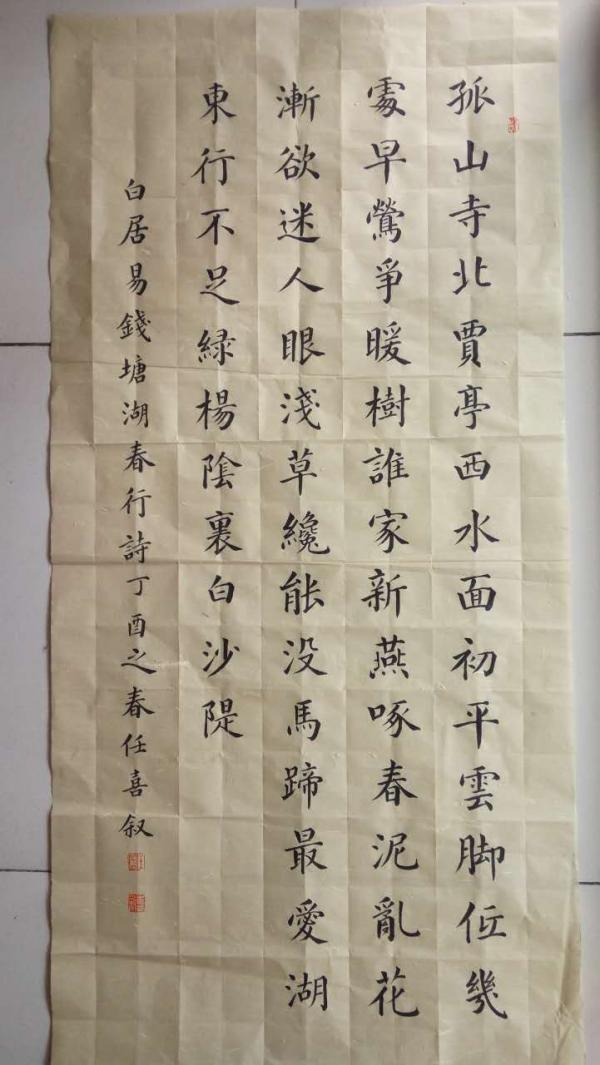 孤山寺北賈亭西水面初平雲脚低幾
處早鶯爭暖樹誰家新燕啄春泥亂花
漸欲迷人眼淺草纔能没馬蹄最愛湖
東行不足緑楊陰裏白沙隄
白居易錢塘湖春行詩丁酉之春任喜叙